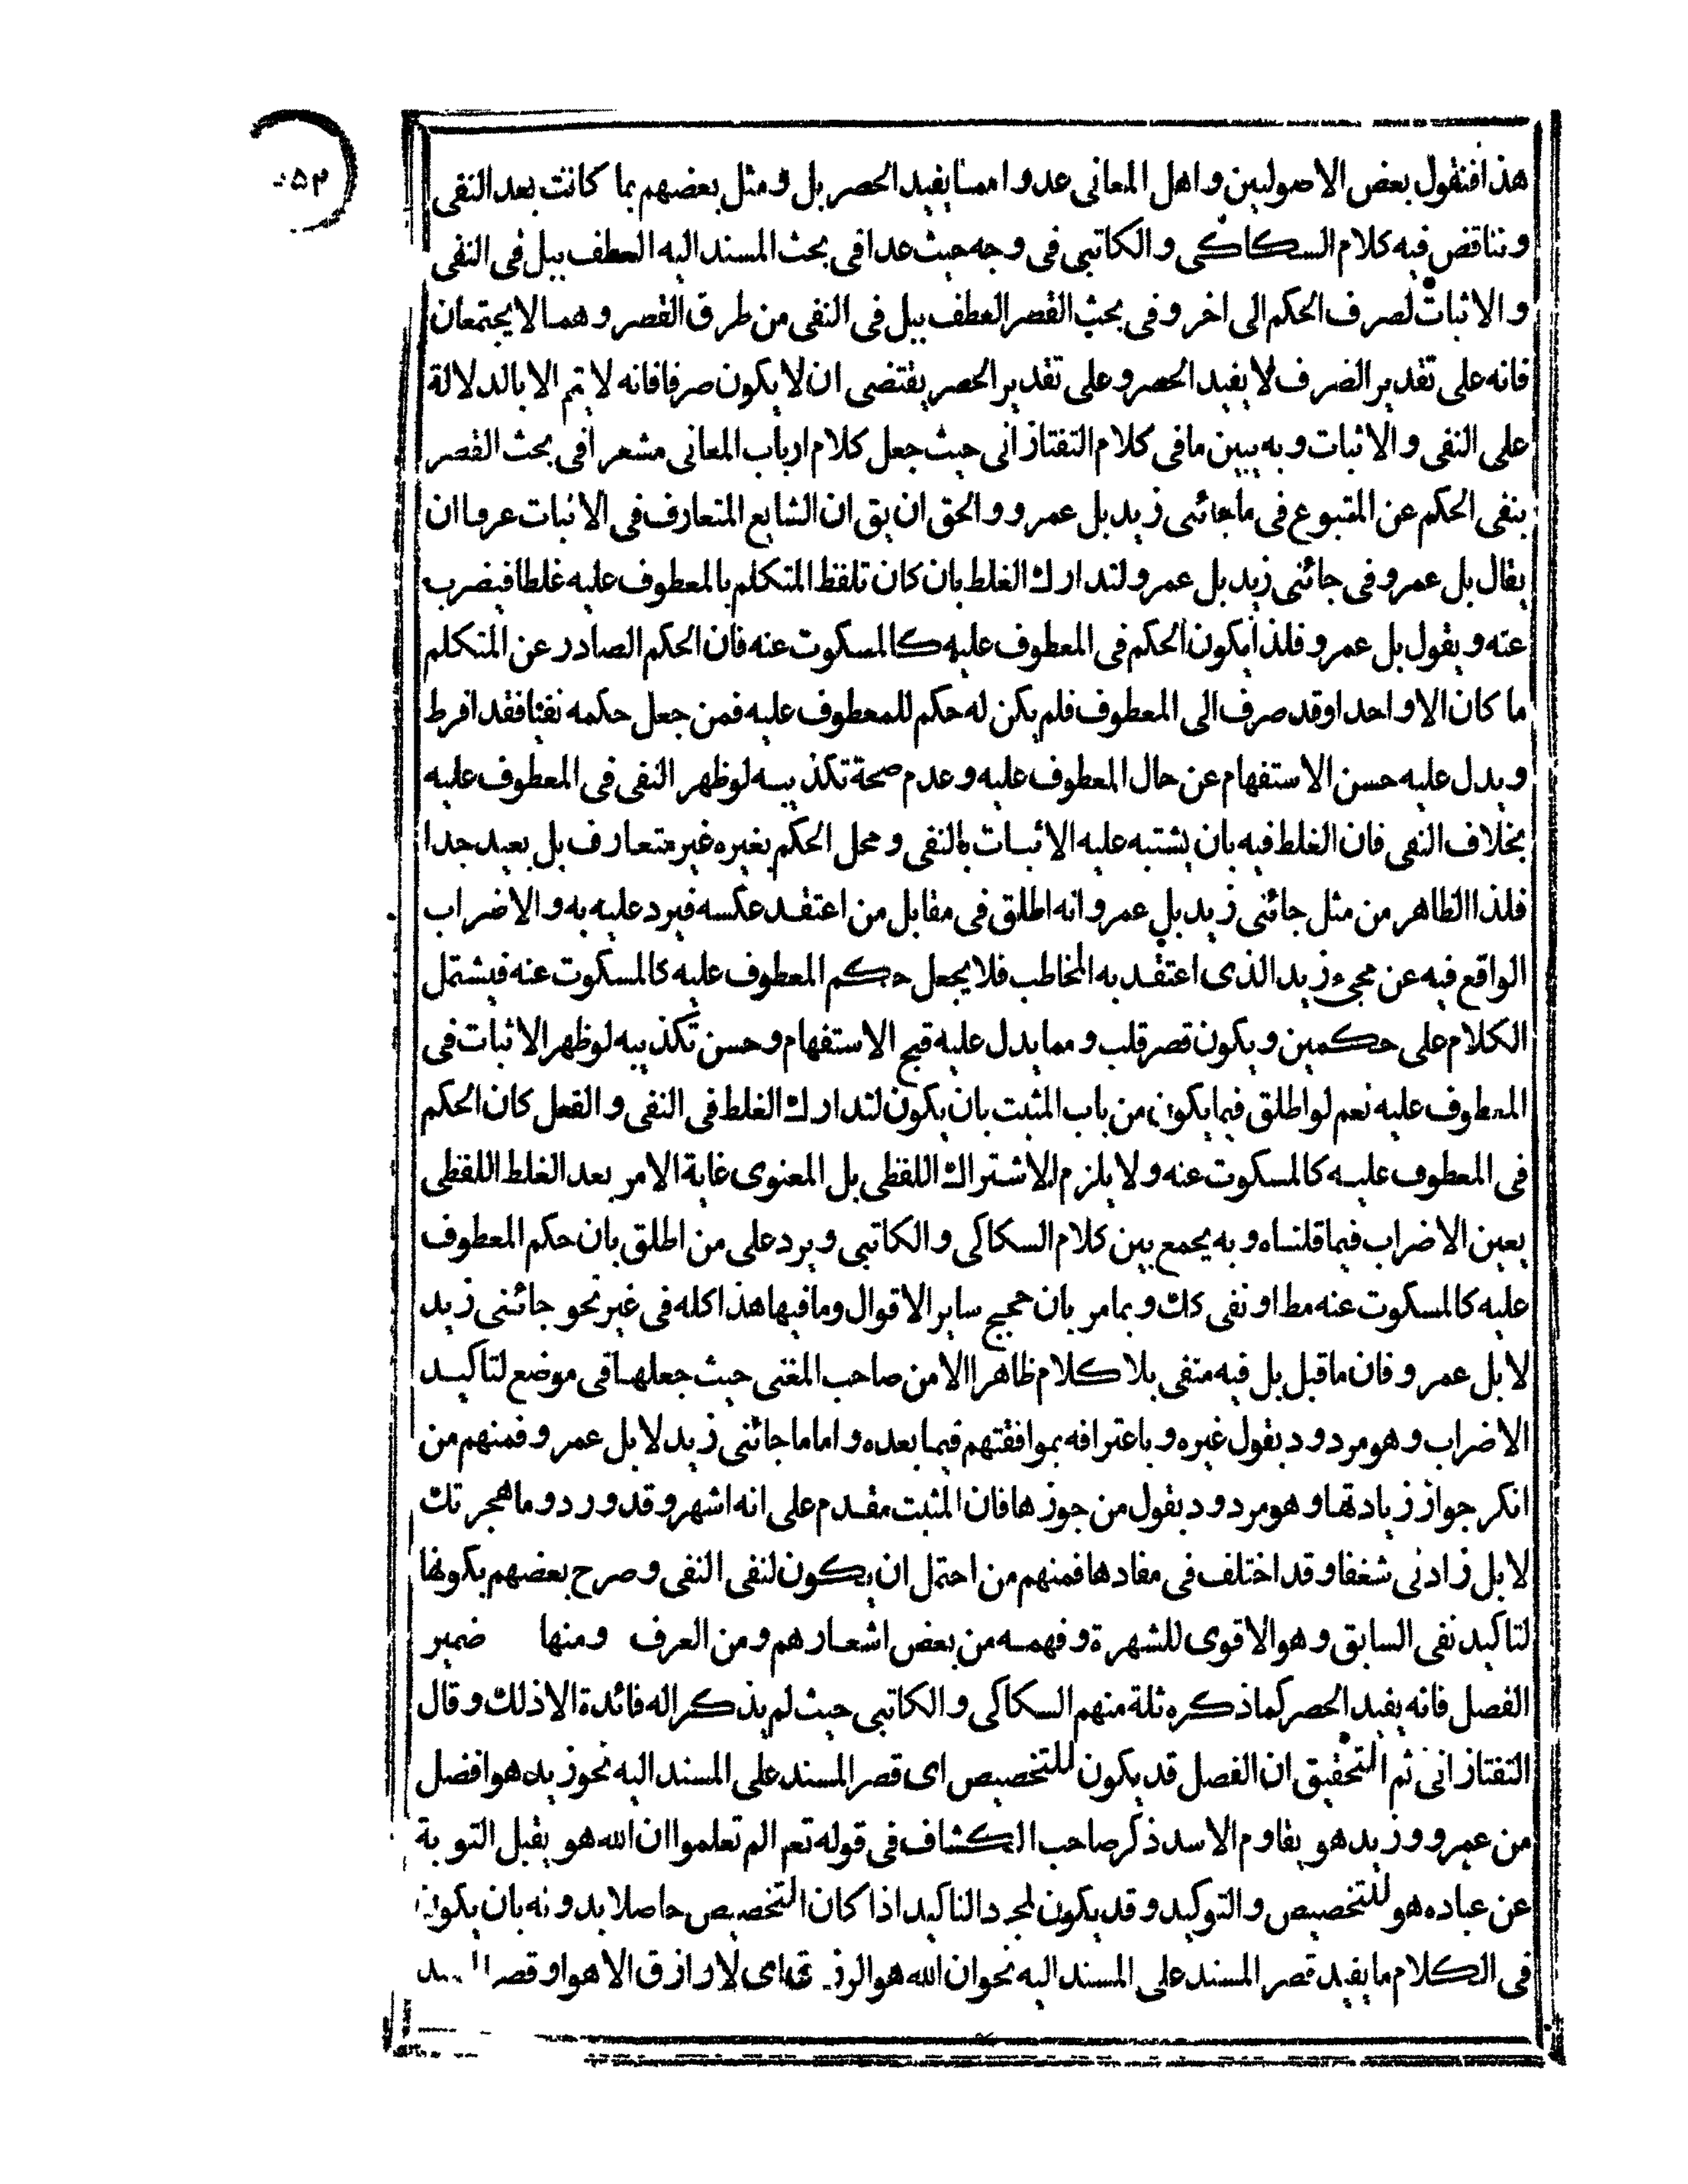 ۰۵۳
هذا فنقول بعض الاصوليين و اهل المعانى عدوا مما يفيد الحصر بل و مثل بعضهم بما كانت بعد النفى
و تناقض فيه كلام السكاكى و الكاتبى فى وجه حيث عدا فى بحث المسند اليه العطف ببل فى النفى
و الاثبات لصرف الحكم الى اخر و فى بحث القصر العطف ببل فى النفى من طرق القصر و هما لا يجتمعان
فانه على تقدير الصرف لا يفيد الحصر و على تقدير الحصر يقتضى ان لا يكون صرفا فانه لا يتم الا بالدلالة
على النفى و الاثبات و به يبين ما فى كلام التفتازانى حيث جعل كلام ارباب المعانى مشعرا فى بحث القصر
بنفى الحكم عن المتبوع فى ما جائنى زيد بل عمرو و الحق ان يق ان الشايع المتعارف فى الاثبات عرفا ان
يقال بل عمرو فى جائنى زيد بل عمرو لتدارك الغلط بان كان تلفظ المتكلم بالمعطوف عليه غلطا فيضرب
عنه و يقول بل عمرو فلذا يكون الحكم فى المعطوف عليه كالمسكوت عنه فان الحكم الصادر عن المتكلم
ما كان الا واحدا وقد صرف الى المعطوف فلم يكن له حكم للمعطوف عليه فمن جعل حكمه نفيا فقد افرط
و يدل عليه حسن الاستفهام عن حال المعطوف عليه و عدم صحة تكذيبه لو ظهر النفى فى المعطوف عليه
بخلاف النفى فان الغلط فيه بان يشتبه عليه الاثبات بالنفى و محل الحكم بغيره غير متعارف بل بعيد جدا
فلذا الظاهر من مثل جائنى زيد بل عمرو انه اطلق فى مقابل من اعتقد عكسه فيرد عليه به و الاضراب
الواقع فيه عن مجىء زيد الذى اعتقد به المخاطب فلا يجعل حكم المعطوف عليه كالمسكوت عنه فيشتمل
الكلام على حكمين و يكون قصر قلب و مما يدل عليه قبح الاستفهام و حسن تكذيبه لو ظهر الاثبات فى
المعطوف عليه نعم لو اطلق فيما يكون من باب المثبت بان يكون لتدارك الغلط فى النفى و الفعل كان الحكم
فى المعطوف عليه كالمسكوت عنه و لا يلزم الاشتراك اللفظى بل المعنوى غاية الامر بعد الغلط اللفظى
يعين الاضراب فيما قلناه و به يجمع بين كلام السكاكى و الكاتبى و يرد على من اطلق بان حكم المعطوف
عليه كالمسكوت عنه مط او نفى كك و بما مر بان حجج ساير الاقوال و ما فيها هذا كله فى غير نحو جائنى زيد
لا بل عمرو فان ما قبل بل فيه منفى بلا كلام ظاهرا الا من صاحب المغنى حيث جعلها فى موضع لتاكيد
الاضراب و هو مردود بقول غيره و باعترافه بموافقتهم فيما بعده و اما ما جائنى زيد لا بل عمرو فمنهم من
انكر جواز زيادتها و هو مردود بقول من جوزها فان المثبت مقدم على انه اشهر و قد ورد و ما هجرتك
لا بل زادنى شغفا و قد اختلف فى مفادها فمنهم من احتمل ان يكون لنفى النفى و صرح بعضهم بكونها
لتاكيد نفى السابق و هو الاقوى للشهرة و فهمه من بعض اشعارهم و من العرف و منها ضمير
الفصل فانه يفيد الحصر كما ذكره ثلة منهم السكاكى و الكاتبى حيث لم يذكرا له فائدة الا ذلك و قال
التفتازانى ثم التحقيق ان الفصل قد يكون للتخصيص اى قصر المسند على المسند اليه نحو زيد هو افضل
من عمرو و زيد هو يقاوم الاسد ذكر صاحب الكشاف فى قوله تعم الم تعلموا ان الله هو يقبل التوبة
عن عباده هو للتخصيص و التوكيد و قد يكون لمجرد التاكيد اذا كان التخصيص حاصلا بدونه بان يكون
فى الكلام ما يفيد قصر المسند على المسند اليه نحو ان الله هو الرزاق اى لا رازق الا هو او قصر